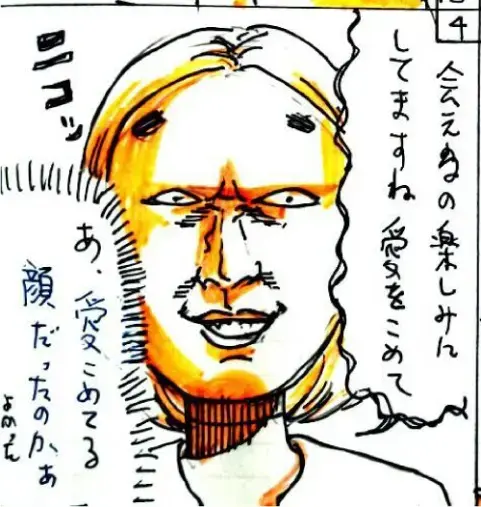 4
会えるの楽しみに
してますね 愛をこめて
ニコッ
あ、愛こめてる
顔だったのかぁ
よかった